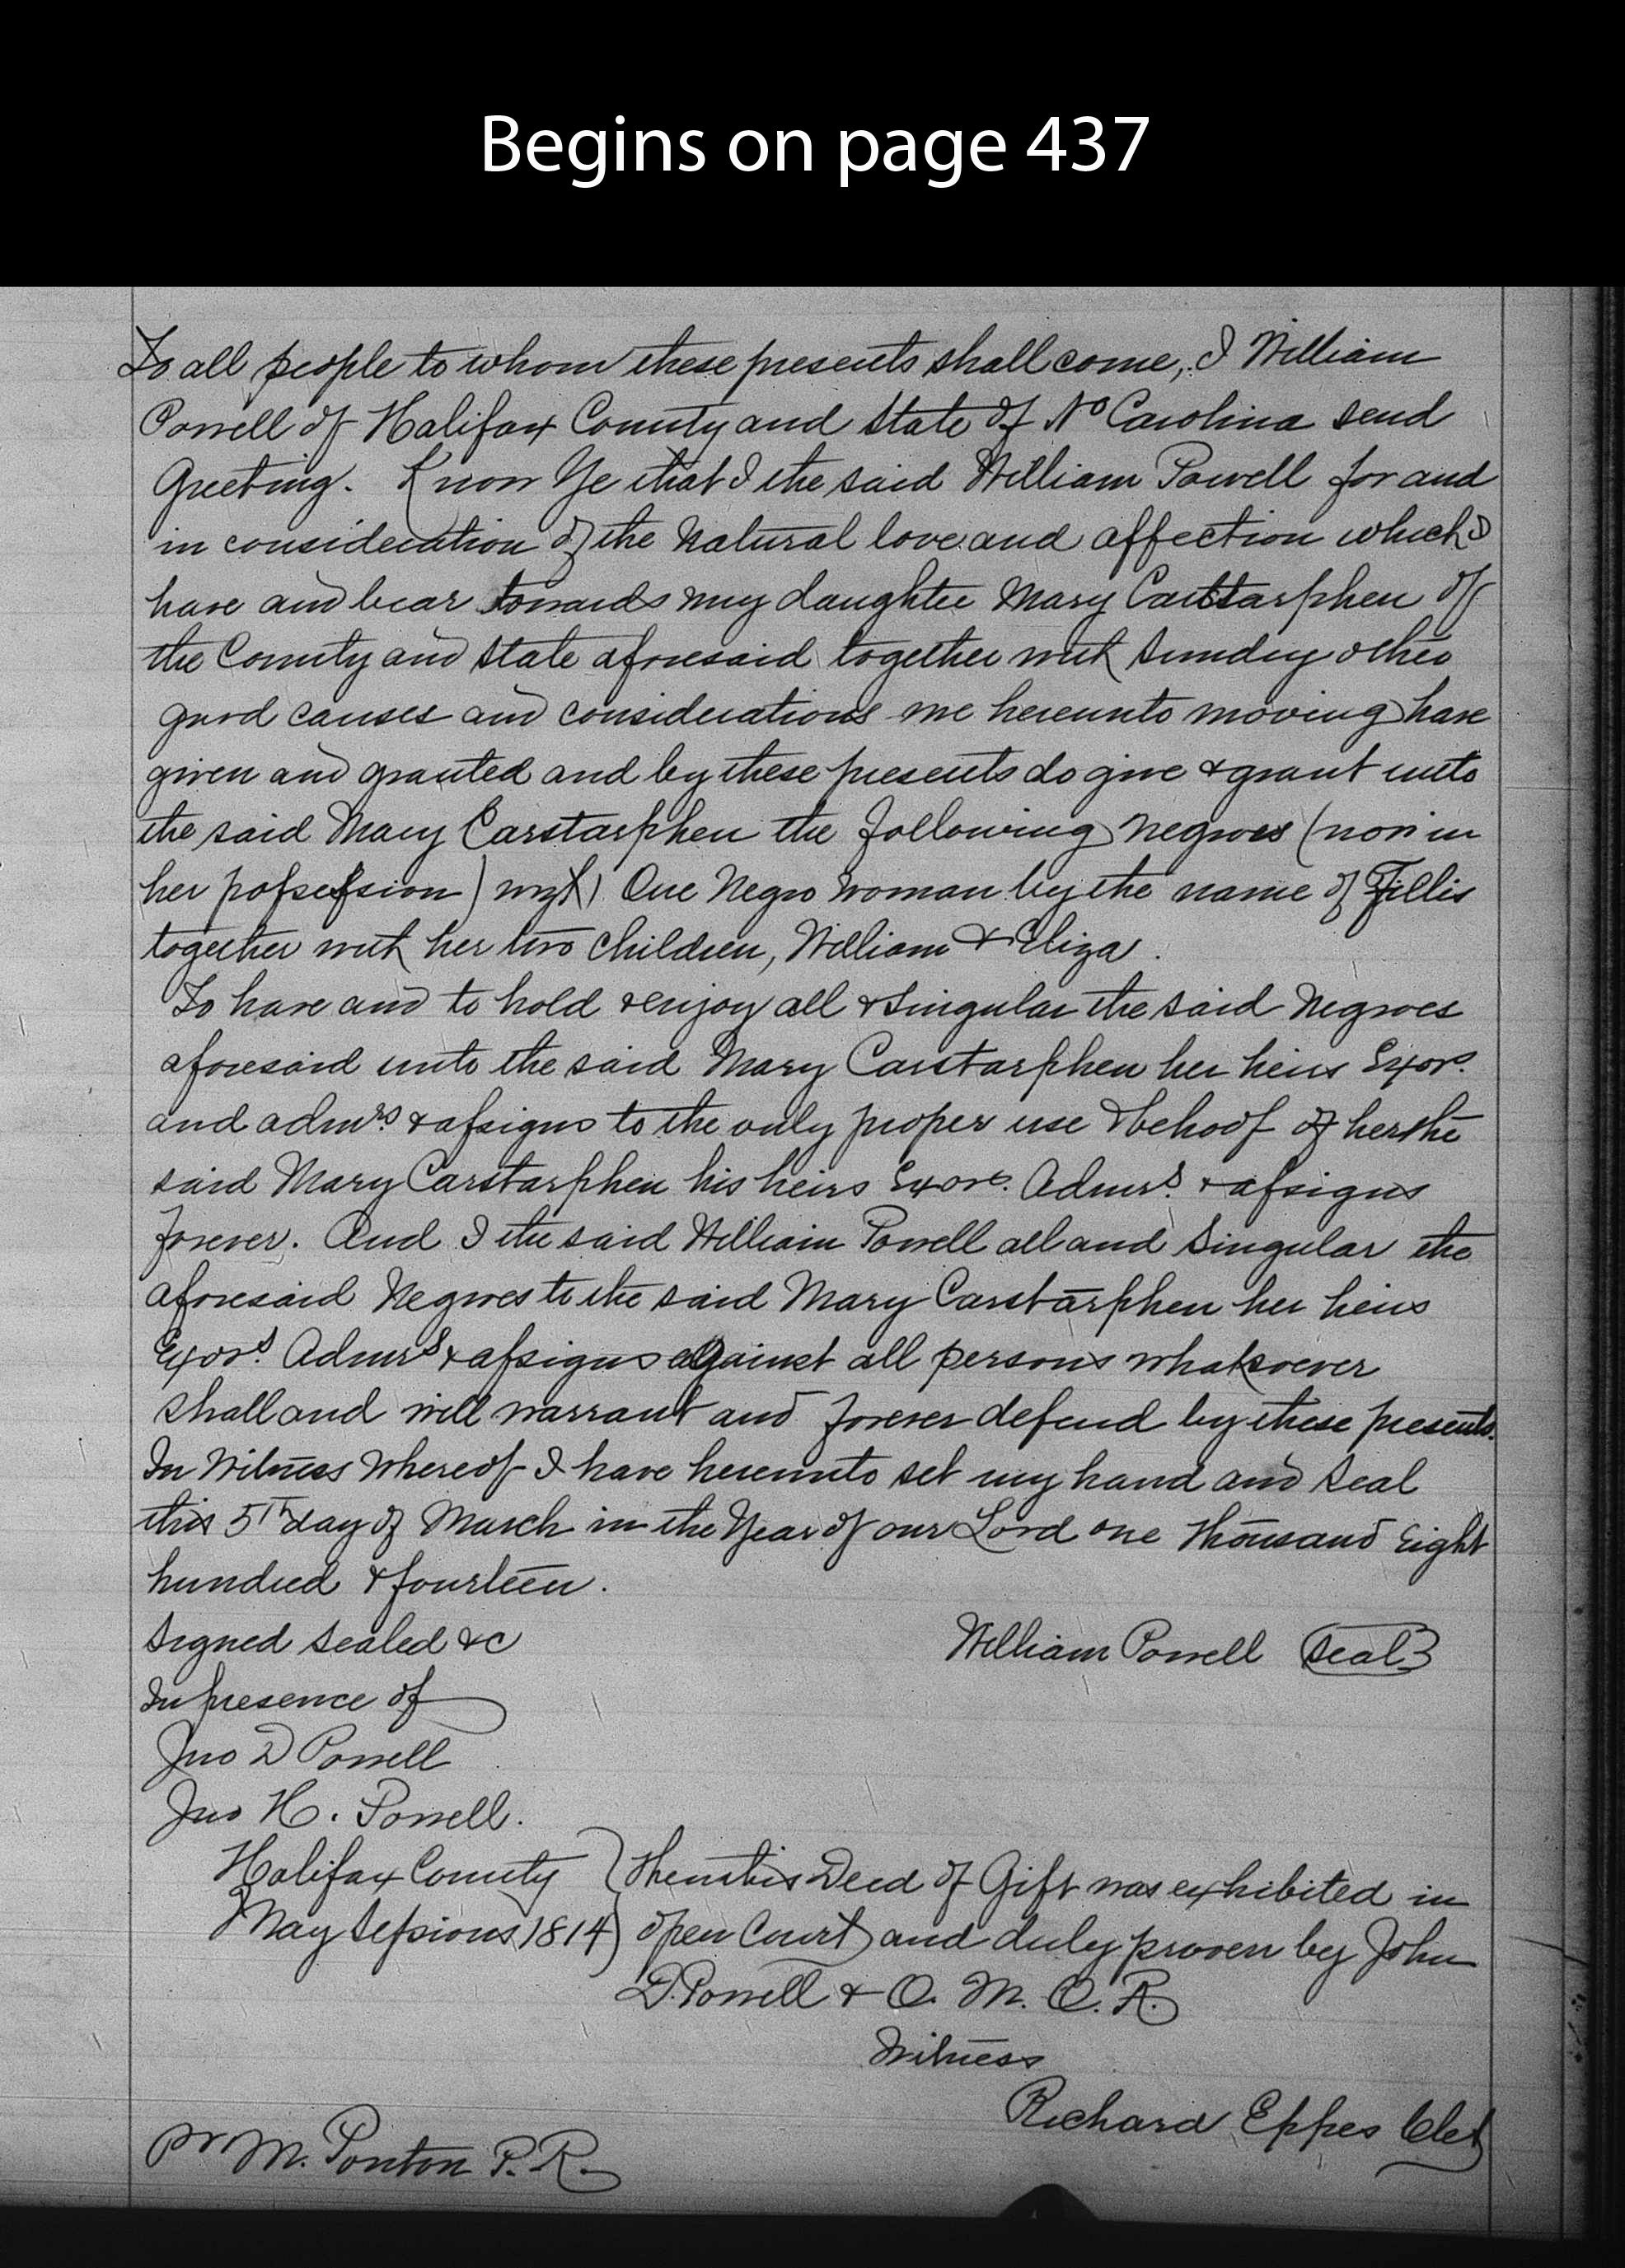 Begins on page 437
To all people to whom these presents shall come, I William
Powell of Halifax County and State of No Carolina send
Greeting. Know Ye that I the said William Powell for and
in consideration of the Natural love and affection which I
have and bear towards my daughter Mary Carstarphen of
the County and State aforesaid together with Sundry other
good causes and considerations me hereunto moving have
given and granted and by these presents do give & grant unto
the said Mary Carstarphen the following negroes (now in
her possession) One Negro Woman by the name of Fillis
together with her two Children, William & Eliza.
To have and to hold & enjoy all & Singular the said Negroes
aforesaid unto the said Mary Carstarphen her heirs Exors.
and admrs. & assigns to the only proper use & behoof of her the
said Mary Carstarphen his heirs Exors. Admrs. & assigns
forever. And I the said William Powell all and Singular the
aforesaid Negroes to the said Mary Carstarphen her heirs
Exors. Admrs & assigns against all persons whatsoever
shall and will warrant and forever defend by these presents.
In Witness Whereof I have hereunto set my hand and Seal
this 5th day of March in the Year of our Lord one Thousand Eight
hundred & fourteen.
Signed Sealed &c William Powell Seal
In presence of
Jno D Powell
Jno H. Powell.
Halifax County Then this Deed of Gift was exhibited in
May Sessions 1814 open Court and duly proven by John
D. Powell & O. M. O. R.
Witness
Richard Eppes Clet
pr M. Ponton P. R.